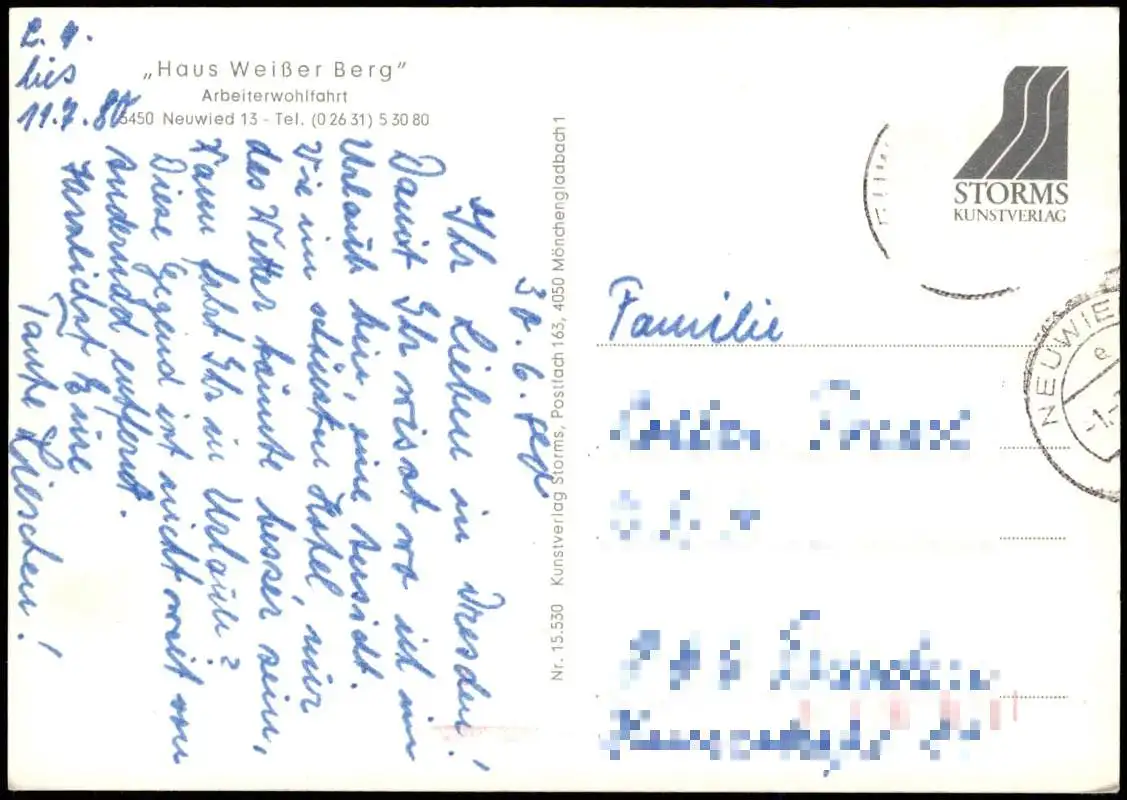 2.7.
bis
11.7.80
„Haus Weißer Berg"
Arbeiterwohlfahrt
5450 Neuwied 13 - Tel. (0 26 31) 5 30 80
30.6.
Ihr Lieben in Dresden!
Damit Ihr wisst wo ich im
Urlaub bin, eine Ansicht.
Wie im schönsten Hotel, nur
das Wetter könnte besser sein,
Wann fahrt Ihr in Urlaub?
Diese Gegend ist nicht weit von
Andernach entfernt.
Herzlichst Eure
Tante Lieschen!
Nr. 15.530 Kunstverlag Storms, Postfach 163, 4050 Mönchengladbach 1
STORMS
KUNSTVERLAG
NEUWIE
e
-1.-
Familie